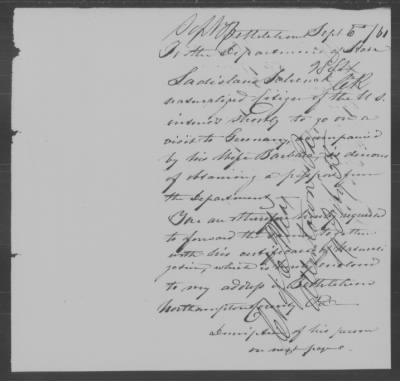 Bethlehem Sept 6 /61
To the Department of State
Ladislaus
naturalized Citizen of the U.S.
intends shortly to go on a
visit to Germany, accompanied
by his Wife Barbara, is desirous
of obtaining a passport from
the Department
You are therefore hereby requested
to forward the same together
with his certificate of
which is enclosed
to my address in Bethlehem
Northampton County Pa
Description of his person
on next page.